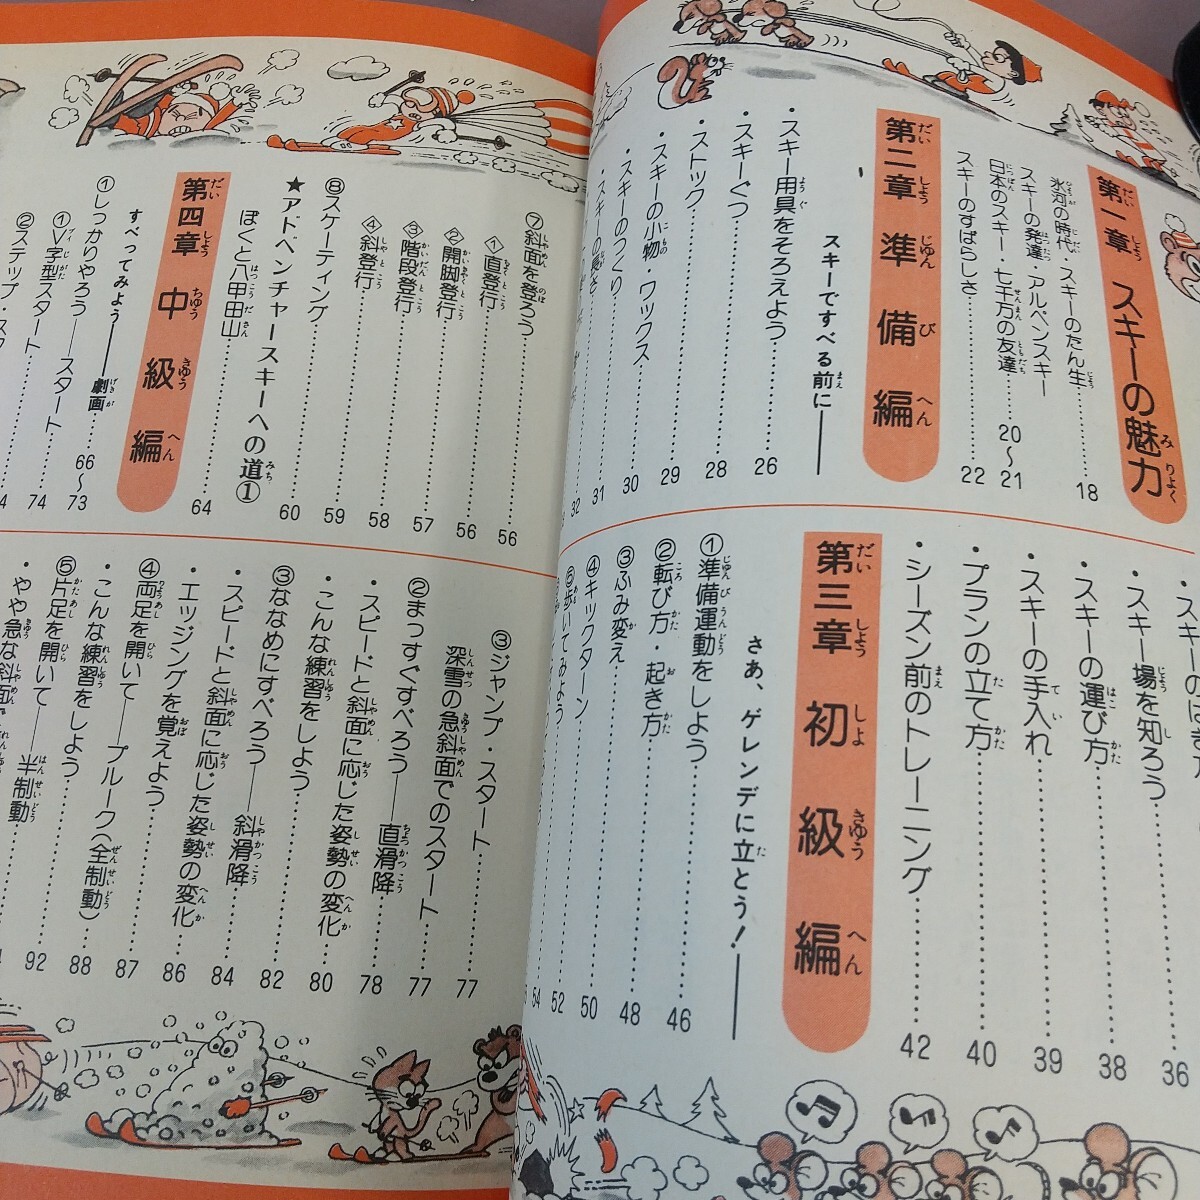 第一章 スキーの魅力
氷河の時代・スキーのたん生……18
スキーの発達・アルペンスキー
日本のスキー・七千万の友達……20～21
スキーのすばらしさ……22
第二章 準備編
スキーですべる前に――
・スキー用具をそろえよう……26
・スキーぐつ……28
・ストック……29
・スキーの小物・ワックス……30
・スキーのつくり……31
・スキーの長さ……32
36
・スキー場を知ろう……38
・スキーの運び方……39
・スキーの手入れ……40
・プランの立て方
・シーズン前のトレーニング……42
第三章 初級編
さあ、ゲレンデに立とう！――
①準備運動をしよう……46
②転び方・起き方……48
③ふみ変え……50
④キックターン……52
⑤歩いてみよう……54
⑦斜面を登ろう……56
①直登行……56
②開脚登行……57
③階段登行……58
④斜登行……59
⑧スケーティング……60
★アドベンチャースキーへの道①
ぼくと八甲田山……64
第四章 中級編
すべってみよう――劇画……66～73
①しっかりやろう――スタート……74
①V字型スタート
②ステップ・スタ
③ジャンプ・スタート……77
深雪の急斜面でのスタート……77
②まっすぐすべろう――直滑降……78
・スピードと斜面に応じた姿勢の変化……80
・こんな練習をしよう……82
③ななめにすべろう――斜滑降……84
・スピードと斜面に応じた姿勢の変化……86
・エッジングを覚えよう……87
④両足を開いて――プルーク（全制動）……88
・こんな練習をしよう……92
⑤片足を開いて――半制動
・やや急な斜面で